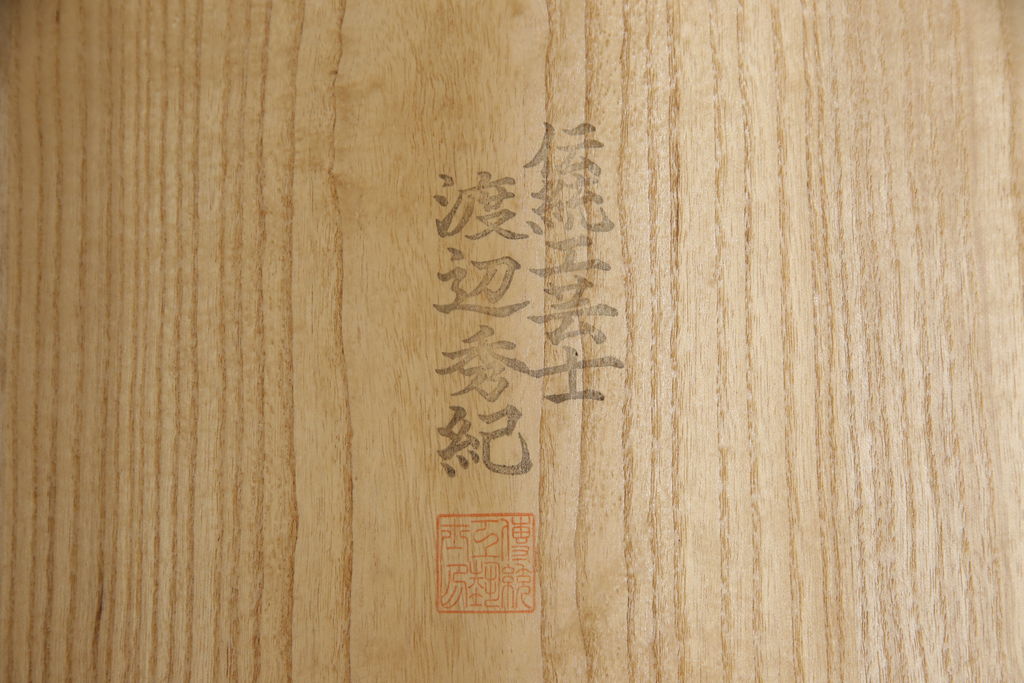 伝統工芸士
渡辺秀紀